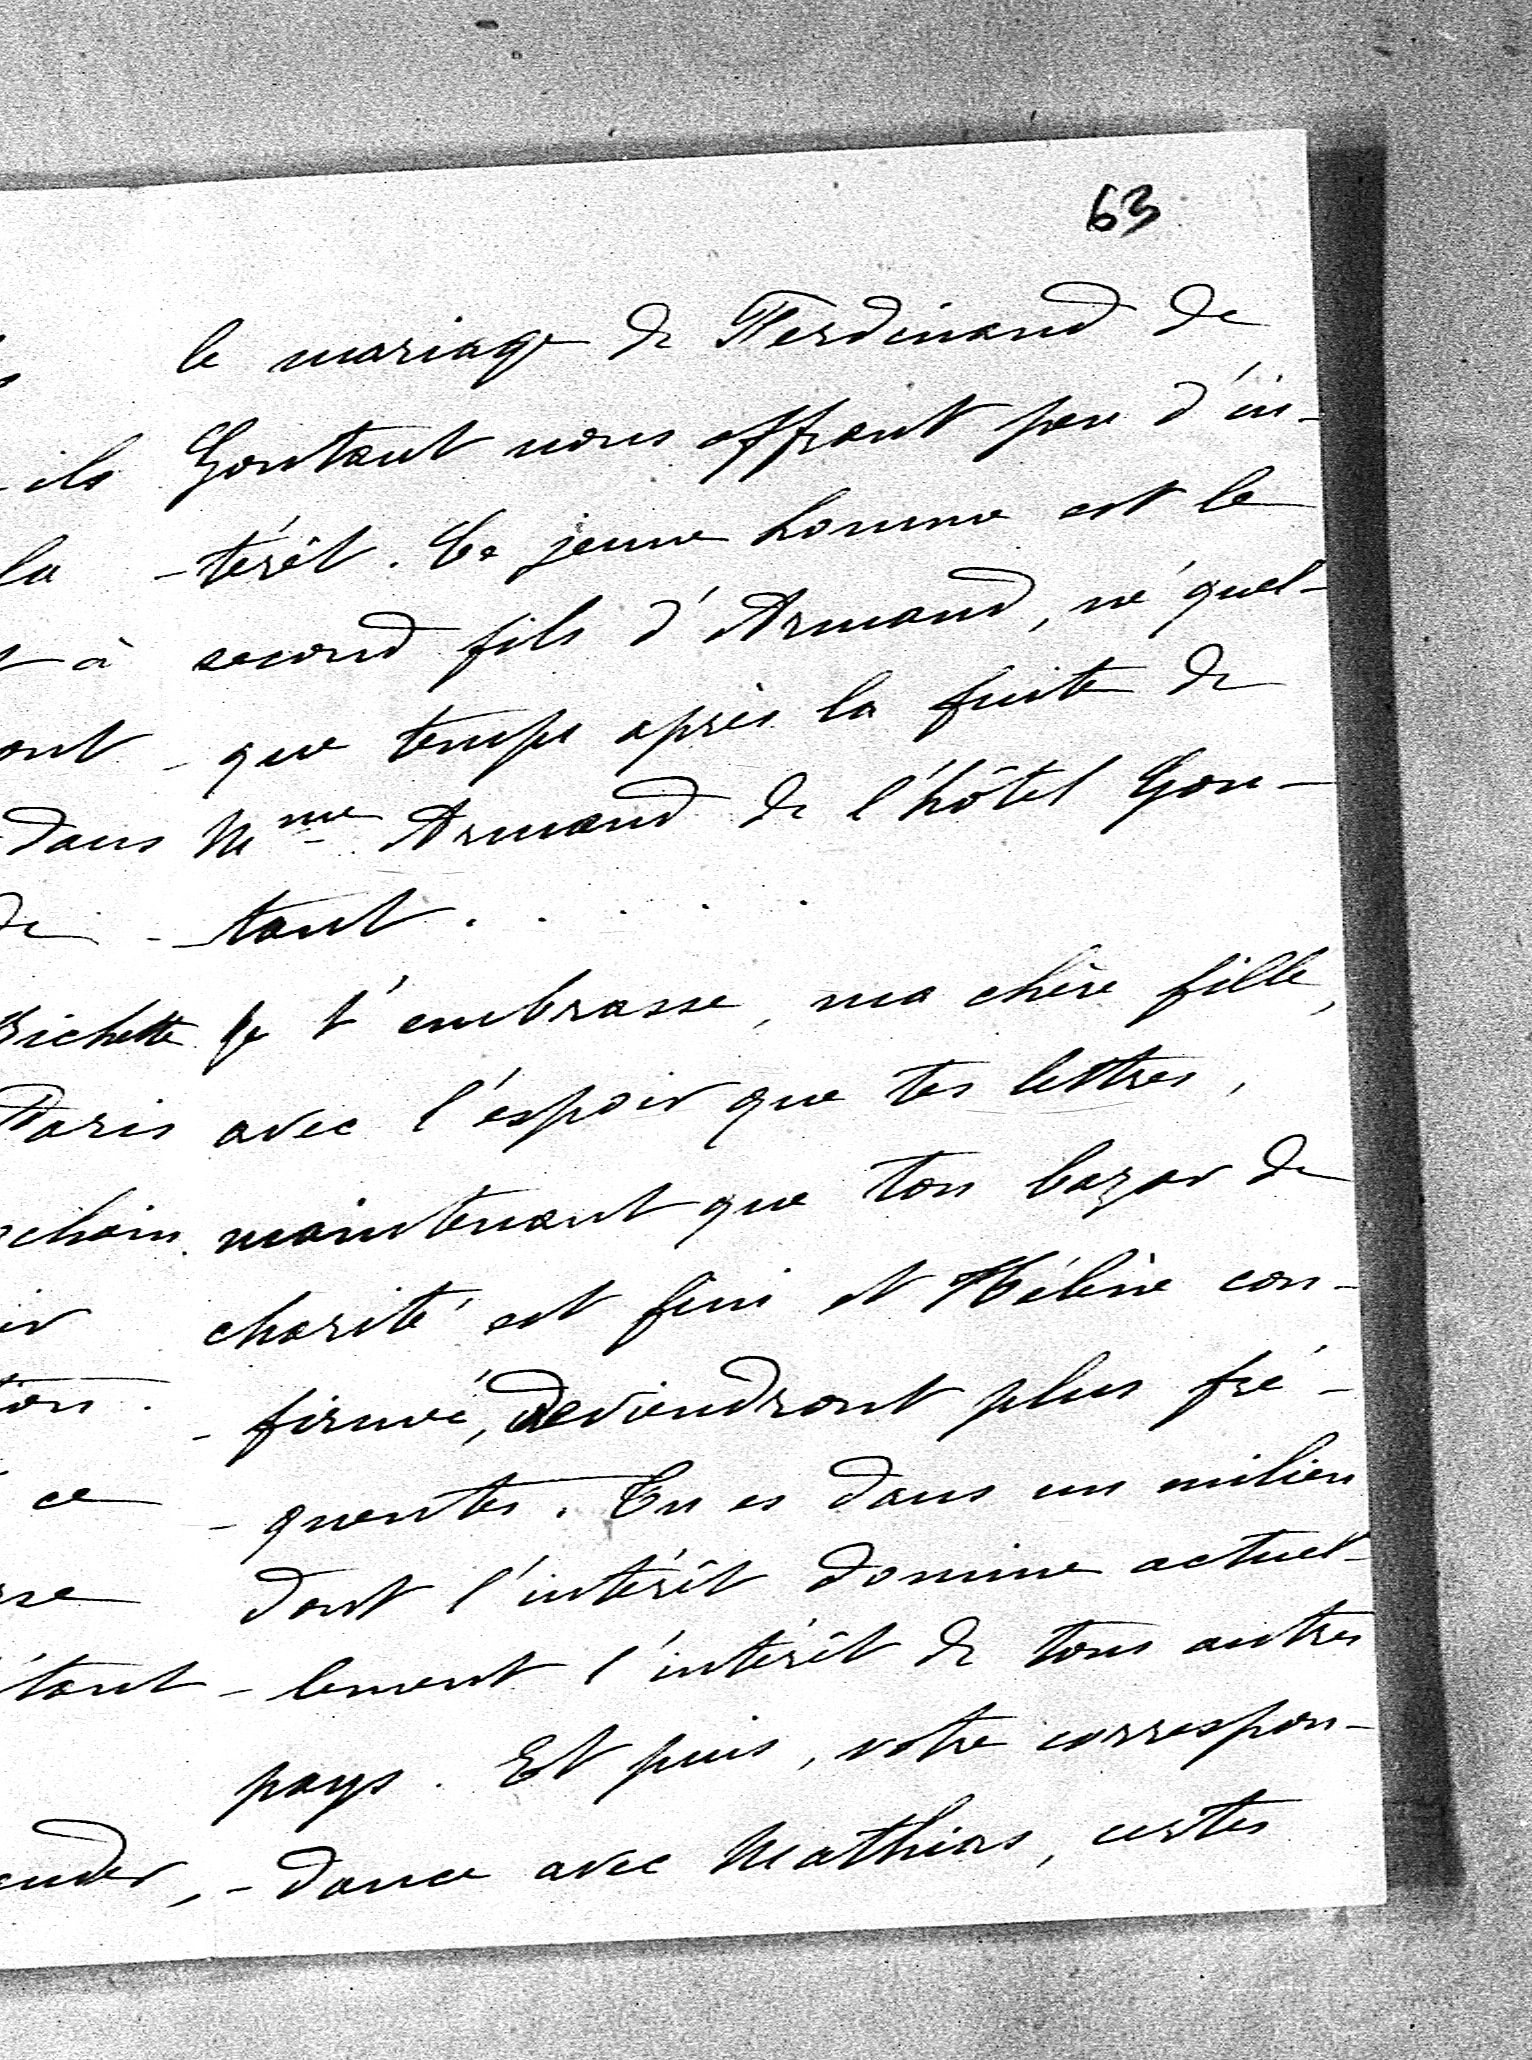 63
le mariage de Ferdinand de
Gontaut nous offrant peu d'in-
-térêt. Ce jeune homme est le
second fils d'Armand, né quel-
-que temps après la fuite de
Mme Armand de l'hôtel Gon-
-taut . . . . .
Je t'embrasse, ma chère fille,
avec l'espoir que tes lettres,
maintenant que ton bazar de
charité est fini et Hélène con-
-firmée, deviendront plus fré-
-quentes. Tu es dans un milieu
dont l'intérêt domine actuel-
-lement l'intérêt de tous autres
pays. Et puis, votre correspon-
-dance avec Mathias, certes
ils
la
à
ont
dans
de
richette
Paris
chain.
ir
ion.
ce
sse
tant
ender,